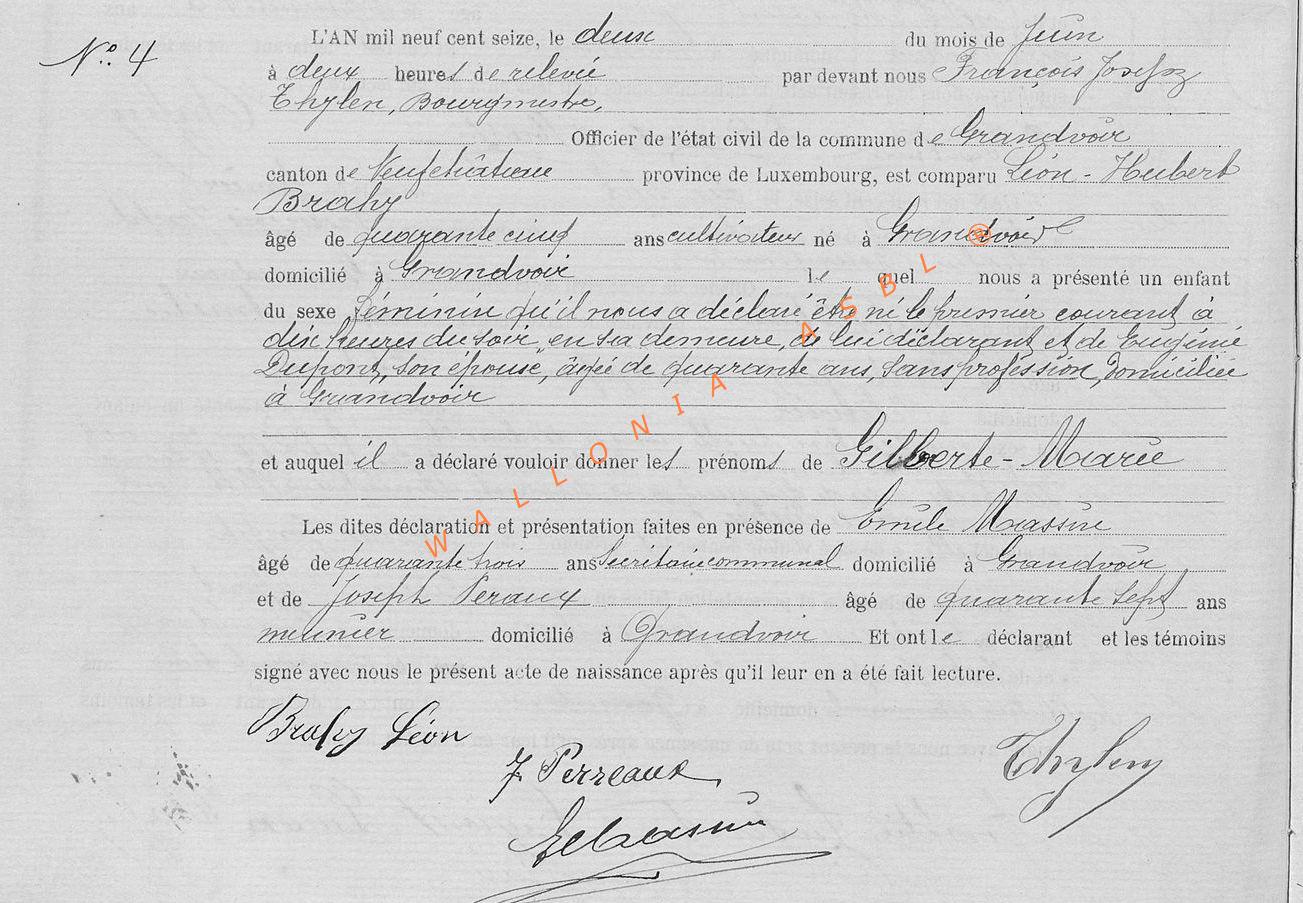 N°. 4
L'AN mil neuf cent seize, le deux du mois de Juin
à deux heures de relevée par devant nous François Joseph
Thylen, Bourgmestre,
Officier de l'état civil de la commune de Grandvoir
canton de Neufchâteau province de Luxembourg, est comparu Léon-Hubert
Brahy
âgé de quarante cinq ans cultivateur né à Grandvoir
domicilié à Grandvoir lequel nous a présenté un enfant
du sexe féminin qu'il nous a déclaré être né le premier courant à
dix heures du soir, en sa demeure, de lui déclarant et de Eugénie
Dupont, son épouse, âgée de quarante ans, sans profession, domiciliée
à Grandvoir
et auquel il a déclaré vouloir donner les prénoms de Gilberte-Marie
Les dites déclaration et présentation faites en présence de Emile Massin
âgé de quarante trois ans Secrétaire communal domicilié à Grandvoir
et de Joseph Peraux âgé de quarante sept ans
meunier domicilié à Grandvoir Et ont le déclarant et les témoins
signé avec nous le présent acte de naissance après qu'il leur en a été fait lecture.
Brahy Léon
J. Perreaux
Thylen
WALLONIA ASBL ®